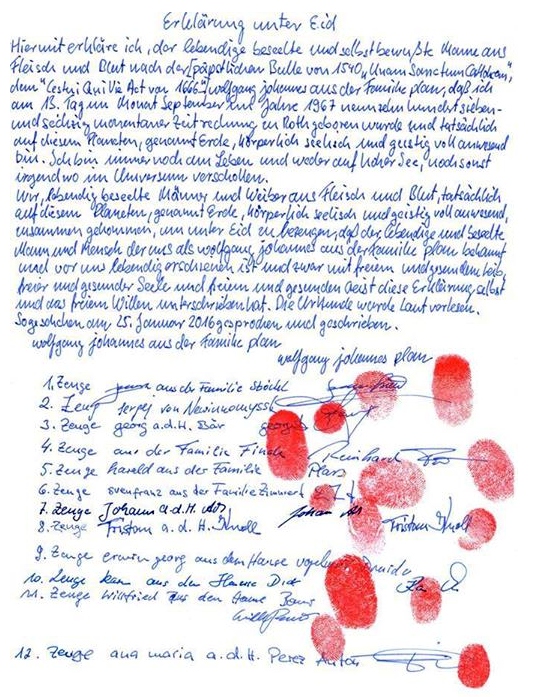 Erklärung unter Eid
Hiermit erkläre ich, der lebendige beseelte und selbstbewußte Mann aus
Fleisch und Blut nach der päpstlichen Bulle von 1540 „Unam Sanctum
dem "Cestui Qui Vie Act von 1666" wolfgang johannes aus der Familie plan, daß ich
am 13. Tag im Monat September im Jahre 1967 neunzehnhundertsieben-
und sechzig momentaner Zeitrechnung in Roth geboren wurde und tatsächlich
auf diesem Planeten, genannt Erde, körperlich seelisch und geistig voll anwesend
bin. Ich bin immer noch am Leben und weder auf hoher See, noch sonst
irgendwo im Universum verschollen.
Wir, lebendig beseelte Männer und Weiber aus Fleisch und Blut, tatsächlich
auf diesem Planeten, genannt Erde, körperlich seelisch und geistig voll anwesend,
zusammen gekommen, um unter Eid zu bezeugen, daß der lebendige und beseelte
Mann und Mensch der uns als wolfgang johannes aus der familie plan bekannt
und vor uns lebendig erschienen ist und zwar mit freiem und gesunden Leib,
freier und gesunder Seele und freiem und gesunden Geist diese Erklärung selbst
und aus freiem Willen unterschrieben hat. Die Urkunde wurde laut vorlesen.
So geschehen am 25. Januar 2016 gesprochen und geschrieben.
wolfgang johannes aus der Familie plan
wolfgang johannes plan
1. Zeuge aus der Familie Stöckl
2. Zeug serpej von Newinnomyssk
3. Zeuge georg a.d.H. Bär georg
4. Zeuge aus der Familie Finck Reinhard
5. Zeuge harald aus der Familie Plars
6. Zeuge svenfranz aus der Familie Zimmert
7. Zeuge Johann a.d.H. Johann
8. Zeuge Tristan a.d.H. Knoll Tristan Knoll
9. Zeuge erwin georg aus dem Hause
10. Zeuge aus dem Hause Dick
11. Zeuge Willfried aus dem Hause
12. Zeuge ana maria a.d.H. Perez Anton